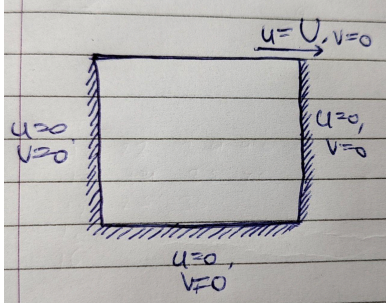 u=U, v=0
u=0,
V=0
u=0,
V=0
u=0,